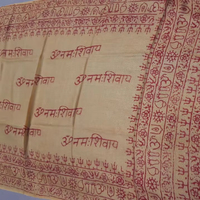 ॐ नमः शिवाय
ॐ नमः शिवाय
ॐ नमः शिवाय
ॐ नमः शिवाय
ॐ नमः शिवाय
ॐ नमः शिवाय
ॐ नमः शिवाय
ॐ नमः शिवाय